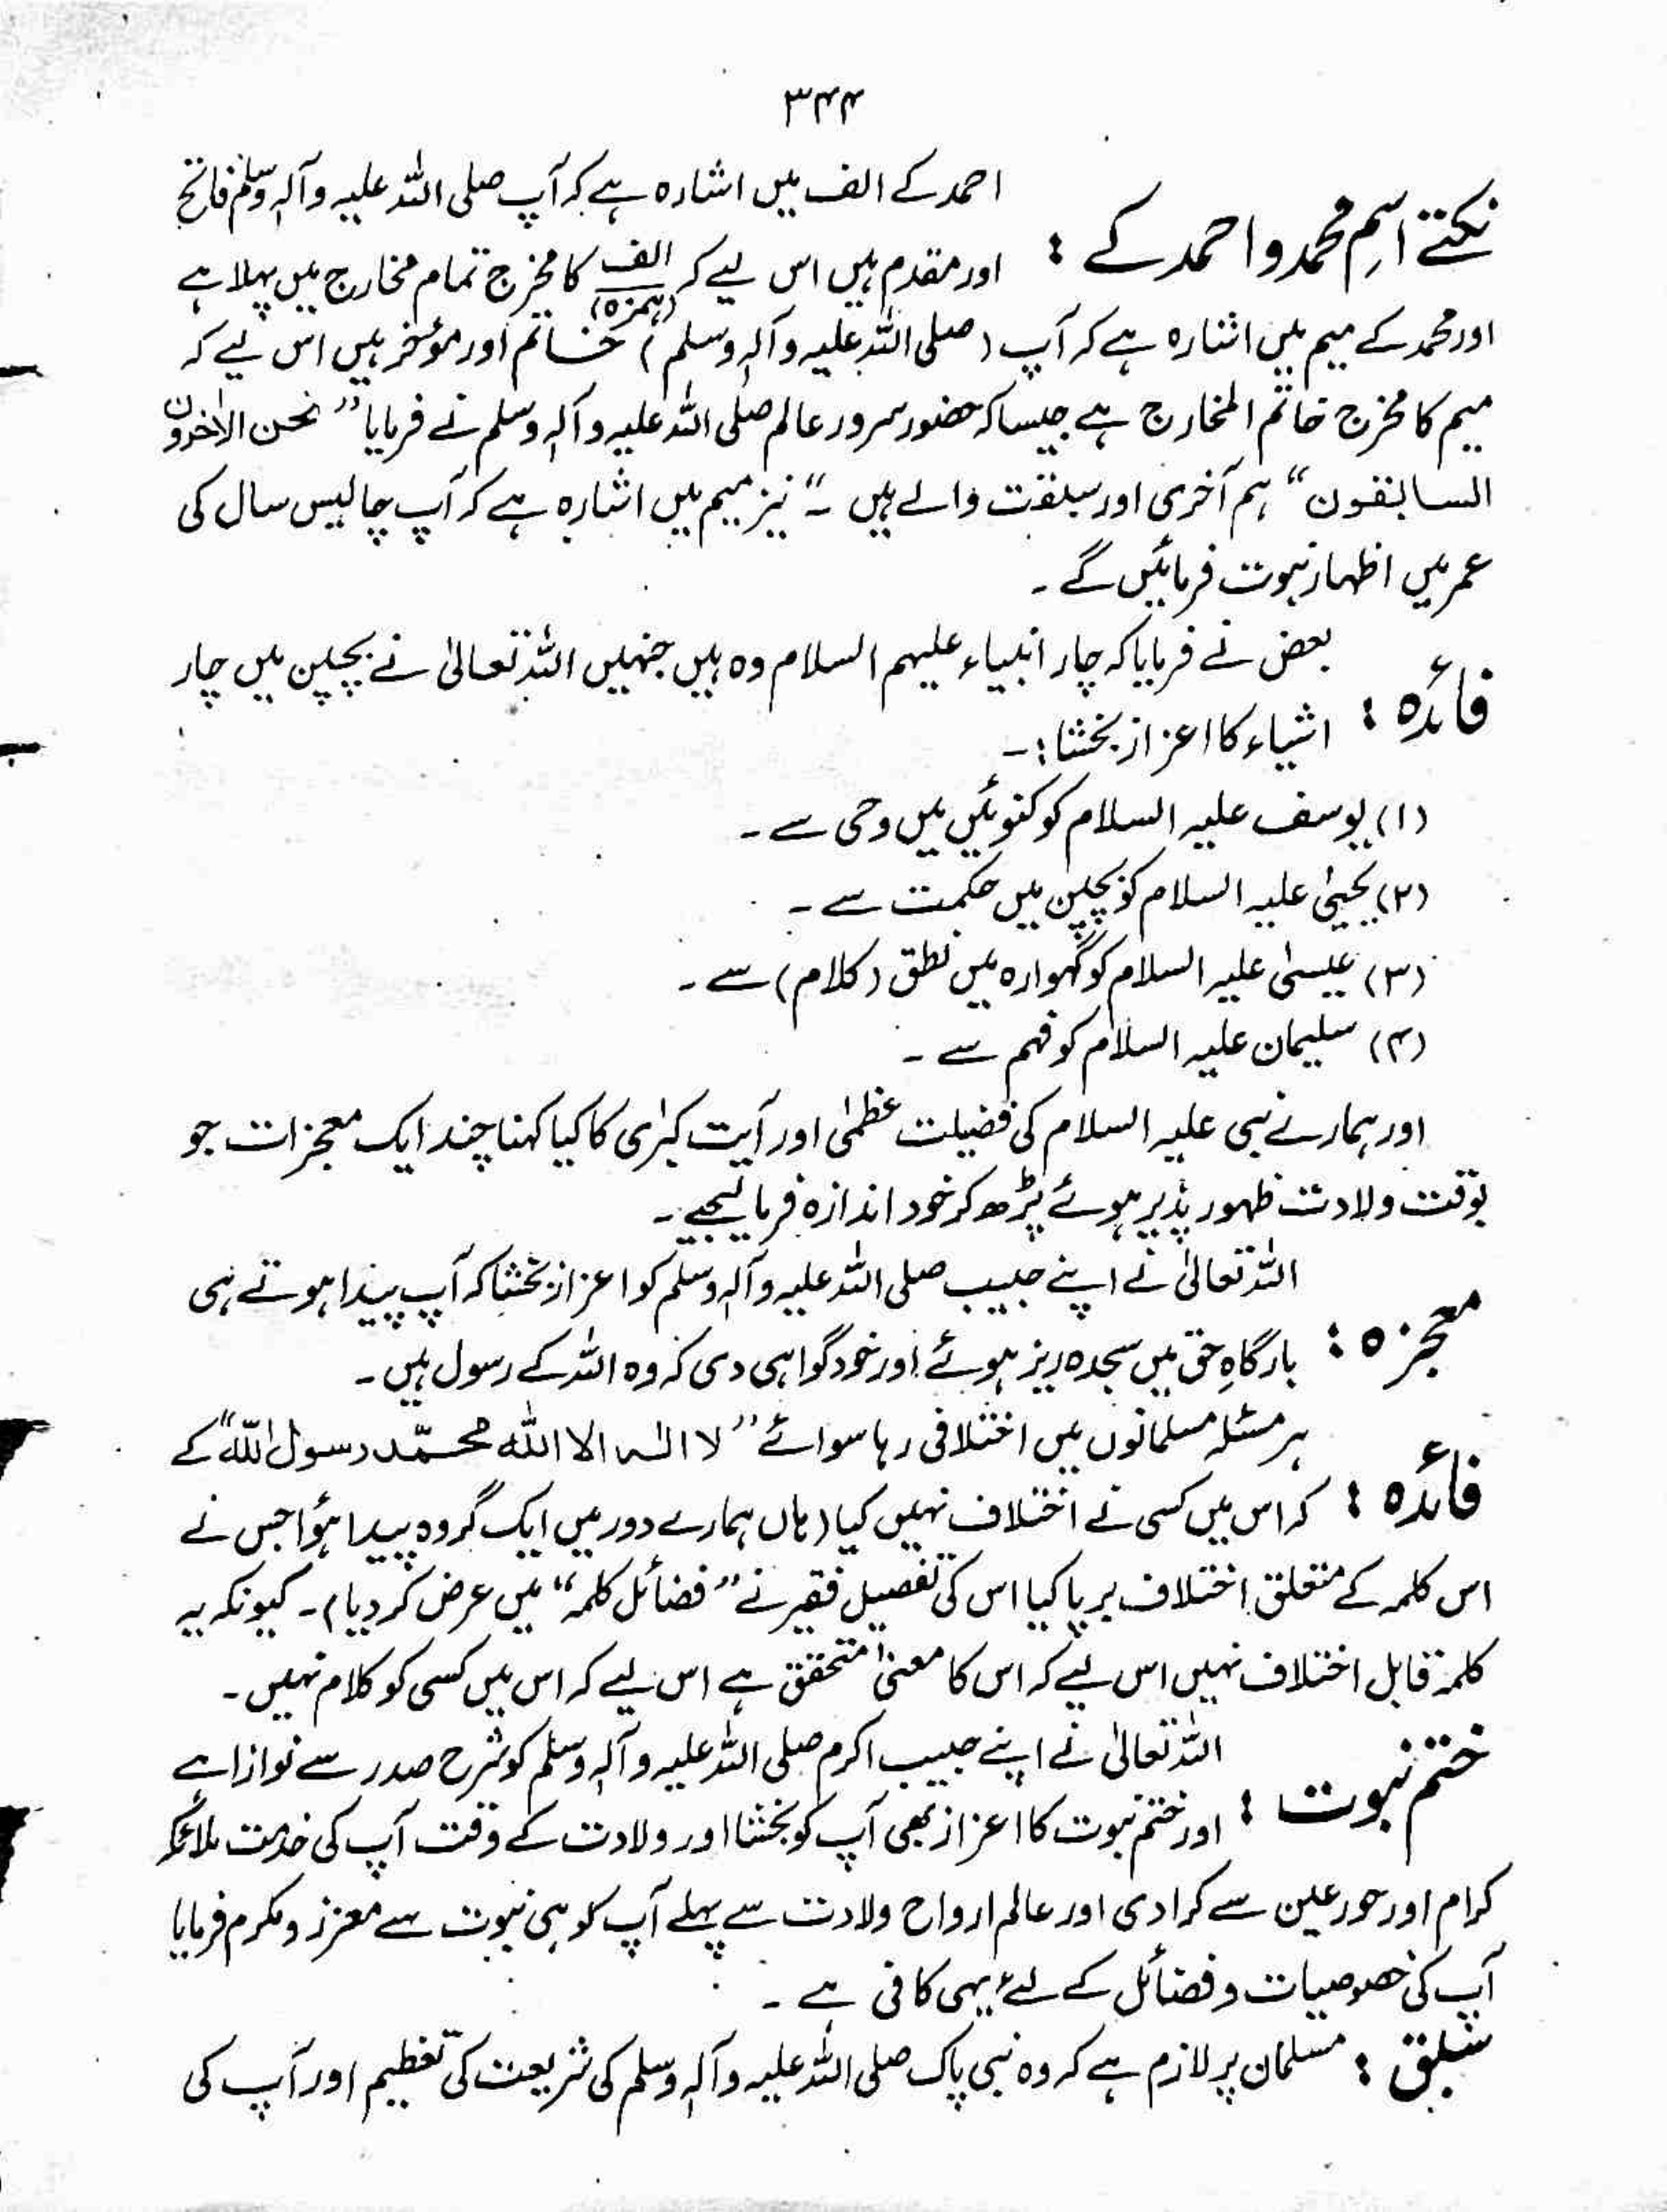 ۳۴۴
نکتے اسمِ محمد و احمد کے : احمد کے الف میں اشارہ ہے کہ آپ صلی اللہ علیہ وآلہٖ وسلم فاتح
اور مقدم ہیں اس لیے کہ الف (ہمزہ) کا مخرج تمام مخارج میں پہلا ہے
اور محمد کے میم میں اشارہ ہے کہ آپ (صلی اللہ علیہ وآلہٖ وسلم) خاتم اور مؤخر ہیں اس لیے کہ
میم کا مخرج خاتم المخارج ہے جیسا کہ حضور سرور عالم صلی اللہ علیہ وآلہٖ وسلم نے فرمایا ” نحن الاٰخرون
السابقون “ ہم آخری اور سبقت والے ہیں ۔“ نیز میم میں اشارہ ہے کہ آپ چالیس سال کی
عمر میں اظہار نبوت فرمائیں گے ۔
فائدہ : بعض نے فرمایا کہ چار انبیاء علیہم السلام وہ ہیں جنہیں اللہ تعالیٰ نے بچپن میں چار
اشیاء کا اعزاز بخشا :۔
(۱) یوسف علیہ السلام کو کنوئیں میں وحی سے ۔
(۲) یحییٰ علیہ السلام کو بچپن میں حکمت سے ۔
(۳) عیسیٰ علیہ السلام کو گہوارہ میں نطق (کلام) سے ۔
(۴) سلیمان علیہ السلام کو فہم سے ۔
اور ہمارے نبی علیہ السلام کی فضیلت عظمٰی اور آیت کبرٰی کا کیا کہنا چند ایک معجزات جو
بوقت ولادت ظہور پذیر ہوئے پڑھ کر خود اندازہ فرمالیجیے ۔
معجزہ : اللہ تعالیٰ نے اپنے حبیب صلی اللہ علیہ وآلہٖ وسلم کو اعزاز بخشا کہ آپ پیدا ہوتے ہی
بارگاہِ حق میں سجدہ ریز ہوئے اور خود گواہی دی کہ وہ اللہ کے رسول ہیں ۔
فائدہ : ہر مسئلہ مسلمانوں میں اختلافی رہا سوائے ” لا الٰہ الا اللہ محمّد رسول اللہ“ کے
کہ اس میں کسی نے اختلاف نہیں کیا (ہاں ہمارے دور میں ایک گروہ پیدا ہؤا جس نے
اس کلمہ کے متعلق اختلاف برپا کیا اس کی تفصیل فقیر نے ” فضائل کلمہ“ میں عرض کر دیا)۔ کیونکہ یہ
کلمہ قابل اختلاف نہیں اس لیے کہ اس کا معنیٰ متحقق ہے اس لیے کہ اس میں کسی کو کلام نہیں ۔
ختم نبوت : اللہ تعالیٰ نے اپنے حبیب اکرم صلی اللہ علیہ وآلہٖ وسلم کو شرح صدر سے نوازا ہے
اور ختم نبوت کا اعزاز بھی آپ کو بخشا اور ولادت کے وقت آپ کی خدمت ملائکہ
کرام اور حور عین سے کرا دی اور عالم ارواح ولادت سے پہلے آپ کو ہی نبوت سے معزز و مکرم فرمایا
آپ کی خصوصیات و فضائل کے لئے یہی کافی ہے ۔
سبق : مسلمان پر لازم ہے کہ وہ نبی پاک صلی اللہ علیہ وآلہٖ وسلم کی شریعت کی تعظیم اور آپ کی